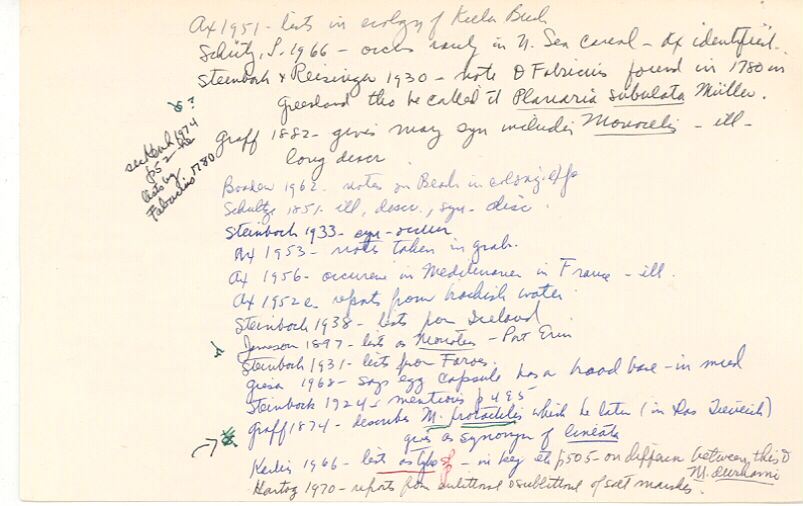 Ax 1951 - lists in ecology of Kieler Buch
Schütz, L. 1966 - occurs rarely in N. Sea Canal - Ax identified.
Steinbock & Reisinger 1930 - note O Fabricius found in 1780 in
Greenland tho he called it Planaria subulata Müller.
Graff 1882 - gives many syn includes Monocelis - ill -
long descr
see 1974
p52 - he
lists by
Fabricius 1780
Boaden 1962 - notes on Beach in
Schultze 1851 - ill, descr., syn - disc.
Steinboch 1933 - syn - occur
Ax 1953 - notes taken in grab.
Ax 1956 - occurence in Mediterranean in France - ill.
Ax 1952c reports from brackish water
Steinboch 1938 - lists from Iceland
Jameson 1897 - lists as Monotus - Port Erin
Steinboch 1931 - lists from Faroes.
Giesa 1968 - says egg capsule has a broad base - in mud
Steinbock 1924 - mentions p 495
Graff 1874 - describes M. protractilis which he later (in Das Tierreich)
gives as synonym of lineata
Karling 1966 - list as type sp - in key etc p505 - on differen between this &
M. durhami
Hartog 1970 - reports from eulittoral & sublittoral of salt marshes.